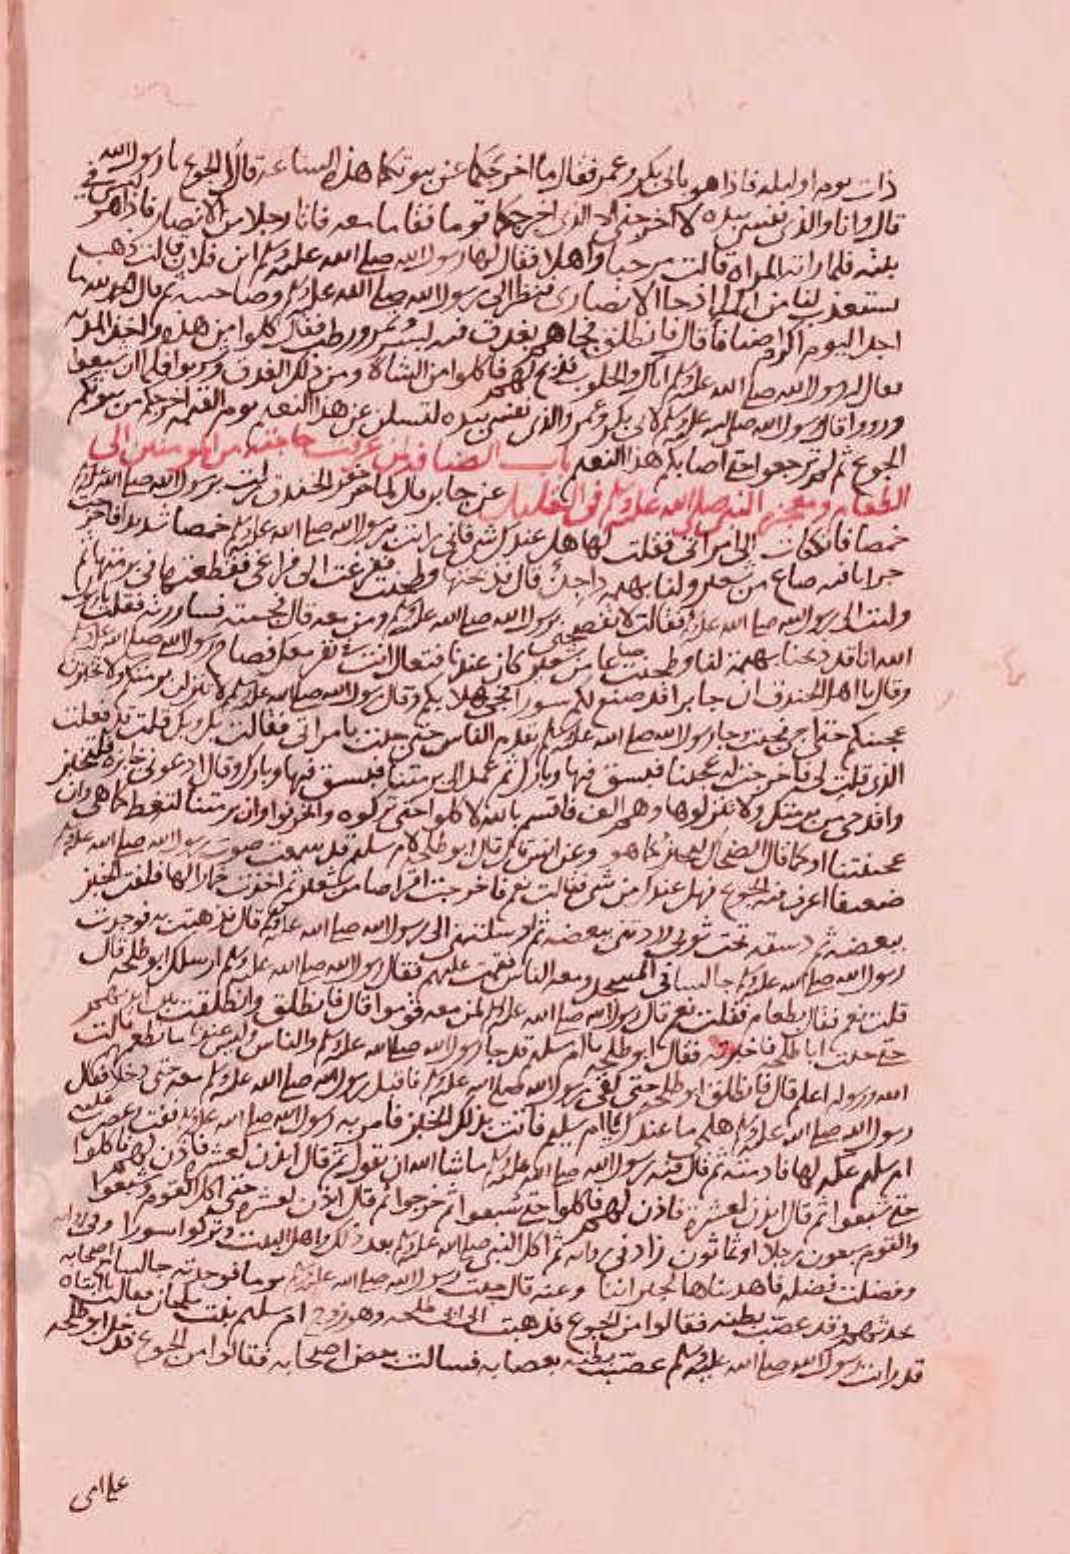 ذات يوم او ليلة فاذا هو بابي بكر وعمر فقال ما اخرجكما عن بيوتكما هذه الساعة قالا الجوع يا رسول الله
قال وانا والذي نفسي بيده لاخرجني الذي اخرجكما قوما فقاما معه فاتا رجلا من الانصار فاذا هو ليس في
بيته فلما راته المراة قالت مرحبا واهلا فقال لها رسول الله صلى الله عليه وسلم اين فلان قالت ذهب
يستعذب لنا من الما اذ جا الانصاري فنظر الى رسول الله صلى الله عليه وسلم وصاحبيه ثم قال الحمد لله ما
احد اليوم اكرم ضيافا قال فانطلق فجاهم بعذق فيه بسر وتمر ورطب فقال كلوا من هذه واخذ المدية
فقال له رسول الله صلى الله عليه وسلم اياك والحلوب فذبح لهم فاكلوا من الشاة ومن ذلك العذق وشربوا فلما ان شبعوا
ورووا قال رسول الله صلى الله عليه وسلم لابي بكر وعمر والذي نفسي بيده لتسئلن عن هذا النعيم يوم القيمة اخرجكم من بيوتكم
الجوع ثم لم ترجعوا حتى اصابكم هذا النعيم باب الضيافة من المومنين الى
الطعام ومعجزة النبي صلى الله عليه وسلم في عن جابر قال لما حفر الخندق رايت برسول الله صلى الله عليه وسلم
خمصا فانكفات الى امراتي فقلت لها هل عندك شي فاني رايت برسول الله صلى الله عليه وسلم خمصا شديدا فاخرجت
جرابا فيه صاع من شعير ولنا بهيمة داجن قال فذبحتها وطحنت ففرغت الى فراغي فقطعتها في برمتها ثم
وليت الى رسول الله صلى الله عليه وسلم فقالت لا تفضحني برسول الله صلى الله عليه وسلم ومن معه قال فجئته فساررته فقلت يا رسول
الله انا قد ذبحنا بهيمة لنا وطحنت صاعا من شعير كان عندنا فتعال انت في نفر معك فصاح رسول الله صلى الله عليه وسلم
وقال يا اهل الخندق ان جابرا قد صنع لكم سورا فحي هلا بكم وقال رسول الله صلى الله عليه وسلم لا تنزلن برمتكم ولا تخبزن
عجينكم حتى اجي فجئت وجا رسول الله صلى الله عليه وسلم يقدم الناس حتى جئت بامراتي فقالت بك وبك قلت قد فعلت
الذي قلت لي فاخرجت له عجينا فبسق فيها وبارك ثم عمد الى برمتنا فبسق فيها وبارك وقال ادعوني خابزة فلتخبز
واقدحي من برمتكم ولا تنزلوها وهم الف فاقسم بالله لاكلوا حتى تركوه وانحرفوا وان برمتنا لتغط كما هي وان
عجينتنا او كما قال الضحاك لتخبز كما هو وعن انس قال قال ابو طلحة لام سليم قد سمعت صوت رسول الله صلى الله عليه وسلم
ضعيفا اعرف فيه الجوع فهل عندك من شي فقالت نعم فاخرجت اقراصا من شعير ثم اخذت خمارا لها فلفت الخبز
ببعضه ثم دسته تحت ثوبي وردتني ببعضه ثم ارسلتني الى رسول الله صلى الله عليه وسلم قال فذهبت به فوجدت
رسول الله صلى الله عليه وسلم جالسا في المسجد ومعه الناس فقمت عليهم فقال رسول الله صلى الله عليه وسلم ارسلك ابو طلحة قال
قلت نعم فقال بطعام فقلت نعم قال رسول الله صلى الله عليه وسلم لمن معه قوموا قال فانطلق وانطلقت بين ايديهم
حتى جئت ابا طلحة فاخبرته فقال ابو طلحة يا ام سليم قد جا رسول الله صلى الله عليه وسلم والناس وليس عندنا ما نطعم قالت
الله ورسوله اعلم قال فانطلق ابو طلحة حتى لقي رسول الله صلى الله عليه وسلم فاقبل رسول الله صلى الله عليه وسلم معه حتى دخلا فقال
رسول الله صلى الله عليه وسلم هلمي ما عندك يا ام سليم فاتت بذلك الخبز فامر به رسول الله صلى الله عليه وسلم ففت وعصرت عليه
ام سليم عكة لها فادمته ثم قال فيه رسول الله صلى الله عليه وسلم ما شا الله ان يقول ثم قال ايذن لعشرة فاذن لهم فاكلوا
حتى شبعوا ثم قال ايذن لعشرة فاذن لهم فاكلوا حتى شبعوا ثم خرجوا ثم قال ايذن لعشرة حتى اكل القوم وشبعوا
والقوم سبعون رجلا او ثمانون زاد في رواية ثم اكل النبي صلى الله عليه وسلم بعد ذلك واهل البيت وتركوا سورا وفي رواية
وفضلت فضلة فاهديناها لجيراننا وعنه قال جيت رسول الله صلى الله عليه وسلم يوما فوجدته جالسا مع اصحابه
يحدثهم وقد عصب بطنه فقالوا من الجوع فذهبت الى ابي طلحة وهو زوج ام سليم بنت ملحان فقالت يا ابتاه
قد رايت رسول الله صلى الله عليه وسلم عصب بطنه بعصابة فسالت بعض اصحابه فقالوا من الجوع فدخل ابو طلحة
على امي